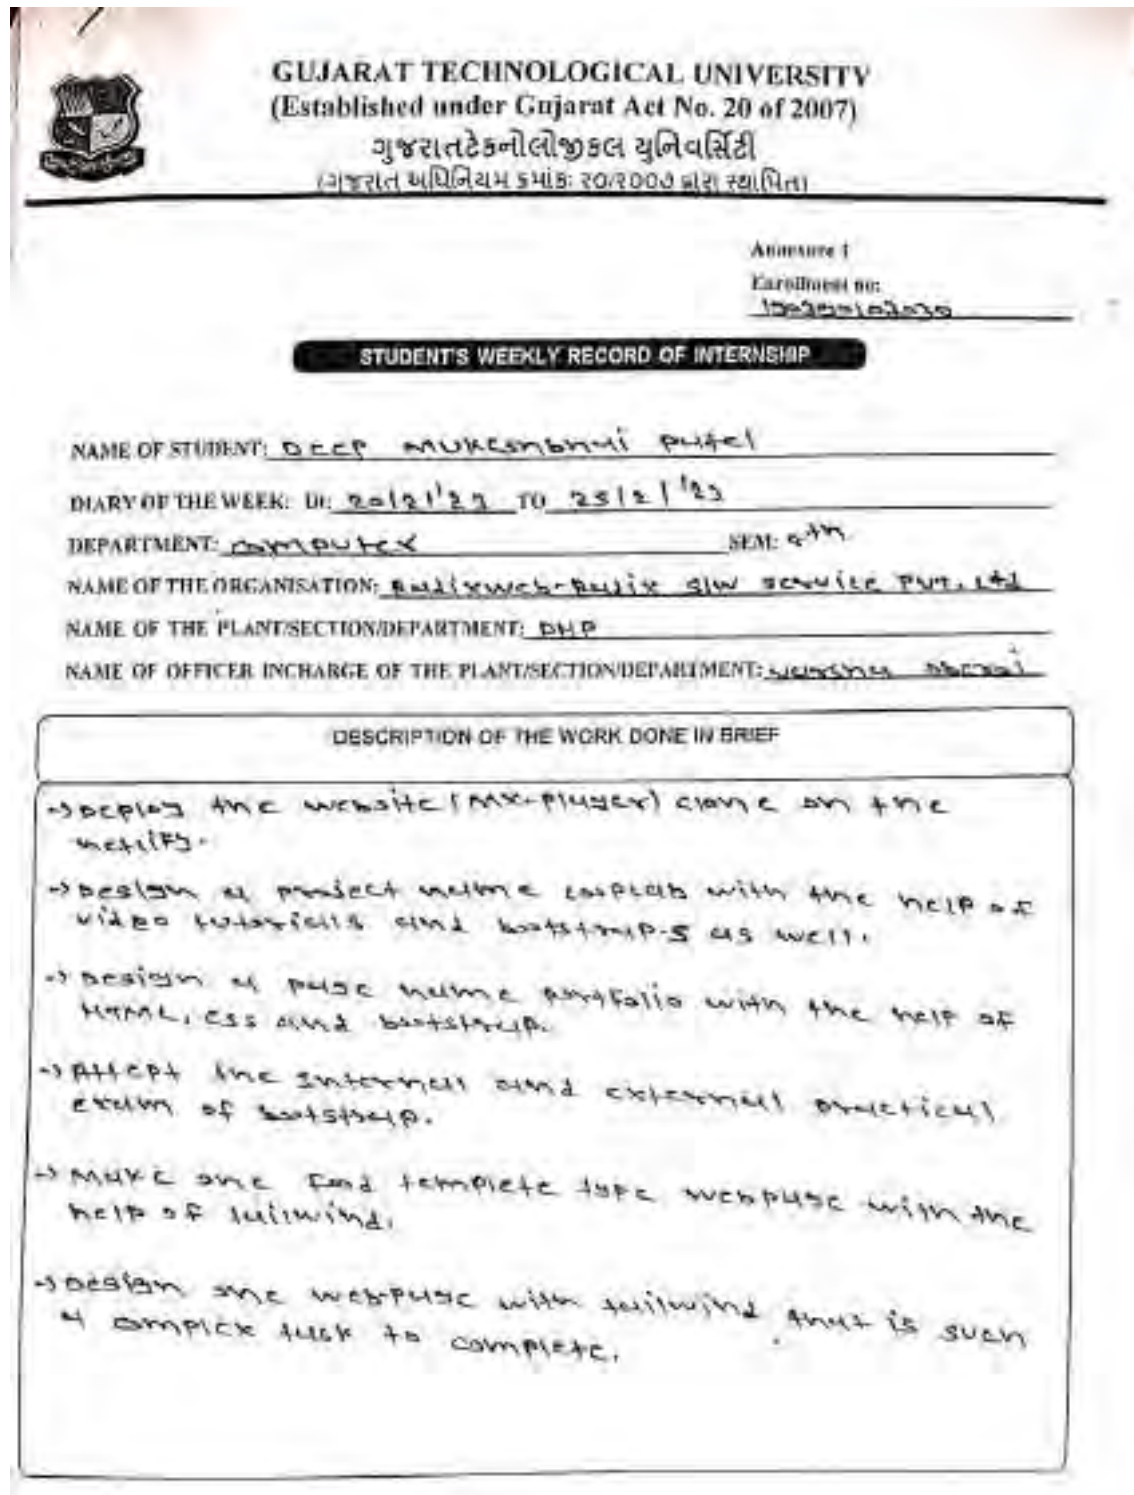 GUJARAT TECHNOLOGICAL UNIVERSITY
(Established under Gujarat Act No. 20 of 2007)
ગુજરાતટેકનોલોજીકલ યુનિવર્સિટી
(ગુજરાત અધિનિયમ ક્રમાંકઃ ૨૦/૨૦૦૭ દ્વારા સ્થાપિત)
Annexure 1
Enrollment no:
STUDENT'S WEEKLY RECORD OF INTERNSHIP
NAME OF STUDENT: Deep Mukeshbhai Patel
DIARY OF THE WEEK: Dt: 20/2/'23 TO 25/2/'23
DEPARTMENT: computer SEM: 8th
NAME OF THE ORGANISATION: Radixweb-Radix S/W service PVT. Ltd
NAME OF THE PLANT/SECTION/DEPARTMENT: PHP
NAME OF OFFICER INCHARGE OF THE PLANT/SECTION/DEPARTMENT:
DESCRIPTION OF THE WORK DONE IN BRIEF
-> Deploy the website (MX-Player) clone on the
netlify.
-> Design a project name with the help of
video tutorials and bootstrap-5 as well.
-> Design a page name portfolio with the help of
HTML, CSS and bootstrap.
-> Attept the internal and external practical
exam of bootstrap.
-> Make one food templete type webpage with the
help of tailwind.
-> Design one web-page with tailwind that is such
a complex task to complete.